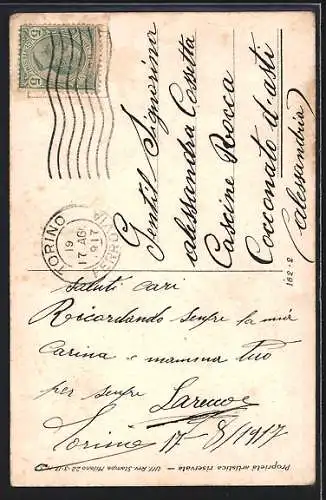 Gentil Signorina
Alessandra Cossetta
Cascine Rocca
Cocconato d'Asti
(Alessandria)
TORINO
FERROVIA
19
17 AG
917
5 5
162-2
saluti cari
Ricordando senpre la mia
Carina e mamma Tuo
per senpre
Torino 17-8/1917
Proprietà artistica riservata — Uff. Rev. Stampa Milano 22-3-17